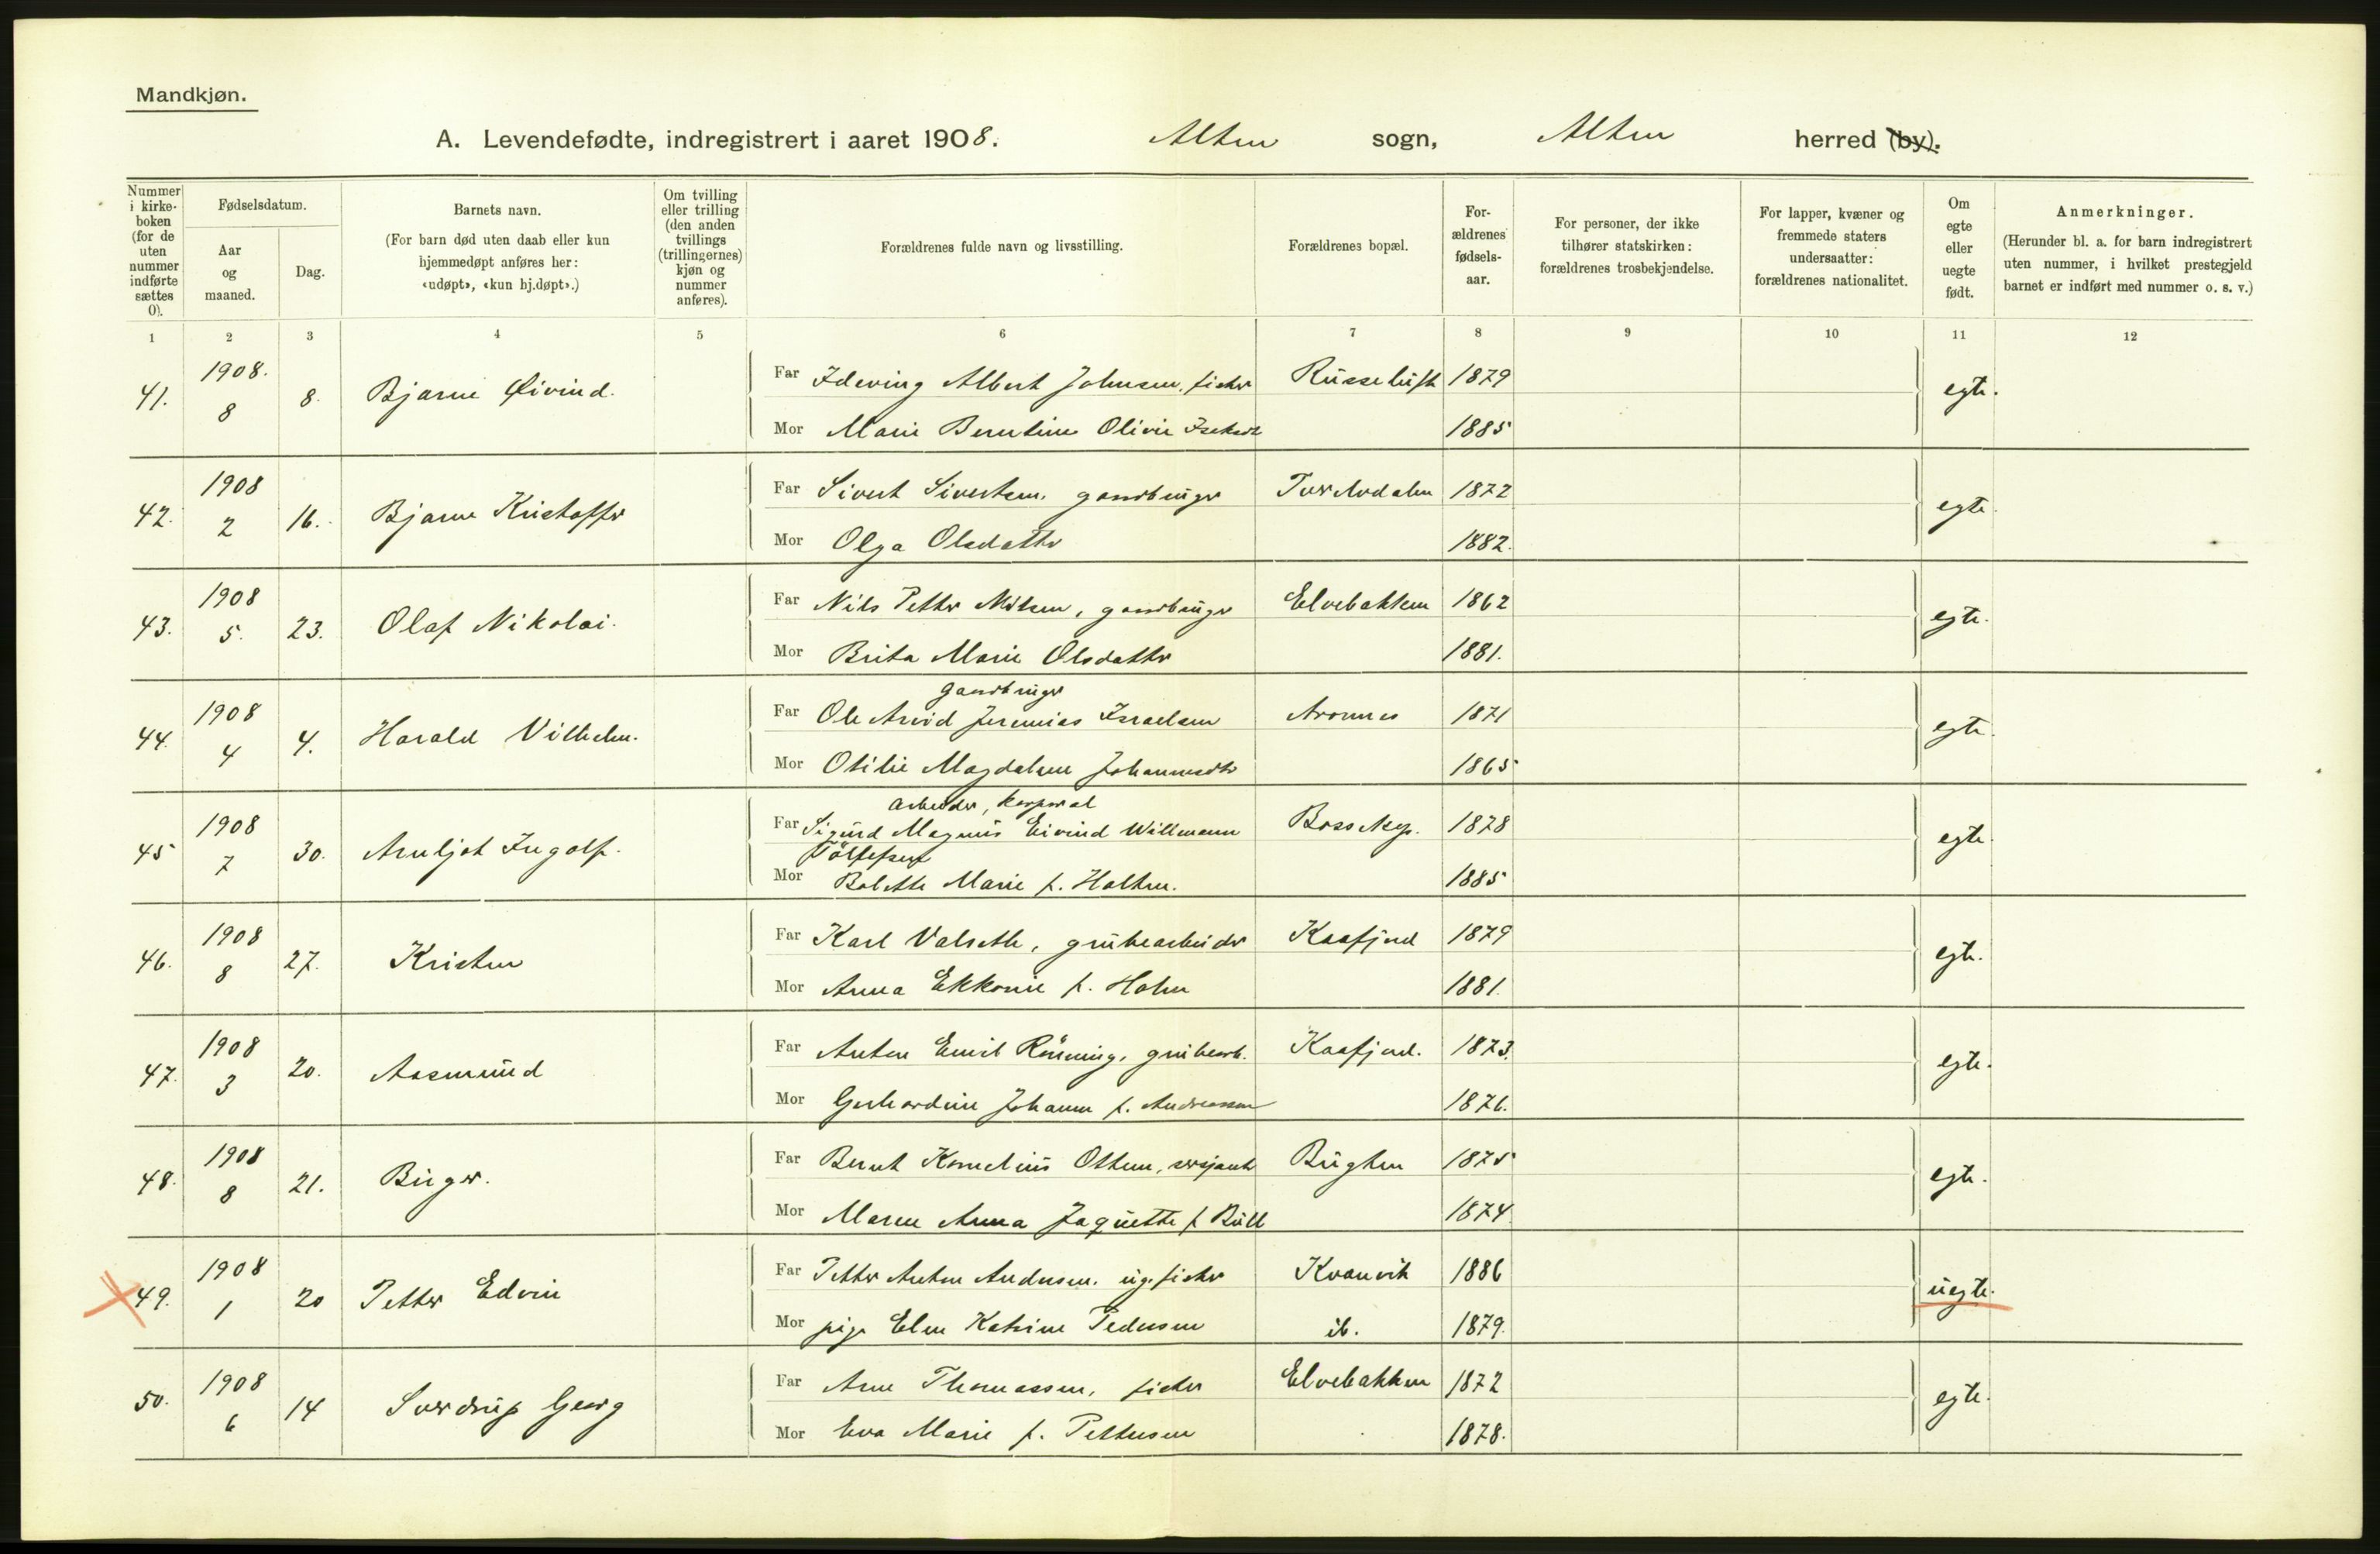 Mandkjøn.
A. Levendefødte, indregistrert i aaret 1908. Alten sogn, Alten herred (by).
Nummer i kirke-boken (for de uten nummer indførte sættes 0).
Fødselsdatum.
Aar og maaned.
Dag.
Barnets navn.
(For barn død uten daab eller kun hjemmedøpt anføres her: «udøpt», «kun hj.døpt».)
Om tvilling eller trilling (den anden tvillings (trillingernes) kjøn og nummer anføres).
Forældrenes fulde navn og livsstilling.
Forældrenes bopæl.
For-ældrenes fødsels-aar.
For personer, der ikke tilhører statskirken: forældrenes trosbekjendelse.
For lapper, kvæner og fremmede staters undersaatter: forældrenes nationalitet.
Om egte eller uegte født.
Anmerkninger.
(Herunder bl. a. for barn indregistrert uten nummer, i hvilket prestegjeld barnet er indført med nummer o. s. v.)
1 2 3 4 5 6 7 8 9 10 11 12
41. 1908. 8 8. Bjarne Øivind. Far Albert Johnsen, fisker 1879 egte.
Mor Marie Berntine Olivie 1885
42. 1908 2 16. Bjarne Kristoffer Far Sivert Sivertsen, gaardbruger Tverelvdalen 1872 egte.
Mor Olga Olsdatter 1882.
43. 1908 5. 23. Olaf Nikolai. Far Nils Petter Nilsen, gaardbruger Elvebakken 1862 egte.
Mor Brita Marie Olsdatter 1881.
gaardbruger
44. 1908 4 4. Harald Vilhelm. Far Ole Arvid Jeremias Israelsen Aronnes 1871 egte.
Mor Otilie Magdalene Johannesdtr 1865
arbeider, korporal
45 1908 7 30. Arnljot Ingolf. Far Sigurd Magnus Eivind Willmann Bossekop. 1878 egte.
Töllefsen
Mor Bolette Marie f. Holten. 1885
46. 1908 8 27. Kristen Far Karl Valseth, grubearbeider Kaafjord 1879 egte.
Mor Anna f. Holm 1881.
47. 1908 3 20. Aasmund Far Anton Emil Rönning, grubearb. Kaafjord. 1873. egte.
Mor Gerhardine Johanne f. Andreassen 1876.
48. 1908 8 21. Birger. Far Bernt Kornelius Ottem, sersjant Bugten 1875 egte.
Mor Maren Anna Jaquette f. Bull 1874.
49. 1908 1 20 Petter Edvin Far Petter Anton Andersen, ug. fisker Kvænvik 1886 uegte.
Mor pige Elen Katrine Pedersen ib. 1879.
50. 1908 6 14 Sverdrup Georg Far Arne Thomassen, fisker Elvebakken 1872 egte.
Mor Eva Marie f. Pettersen 1878.